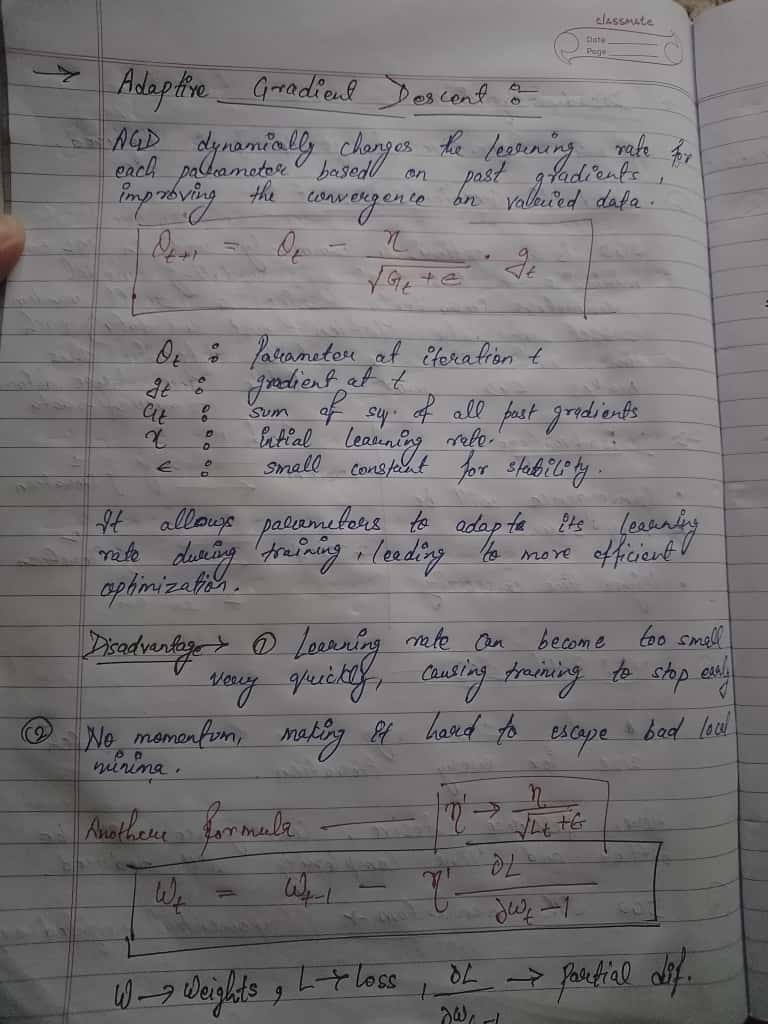 classmate
Date
Page
→ Adaptive Gradient Descent :-
AGD dynamically changes the learning rate for
each parameter based on past gradients,
improving the convergence on varried data.
θt+1 = θt - η/√Gt + ϵ · gt
θt : Parameter at iteration t
gt : gradient at t
Gt : sum of sq. of all past gradients
η : intial learning rate.
ϵ : small constant for stability.
It allows parameters to adapt its learning
rate during training, leading to more efficient
optimization.
Disadvantage → ① Learning rate can become too small
very quickly, causing training to stop early
② No momentum, making it hard to escape bad local
minima.
Another formula — η' → η/√Lt + G
Wt = Wt-1 - η' ∂L/∂wt-1
W → Weights, L → Loss, ∂L/∂wt-1 → Partial dif.